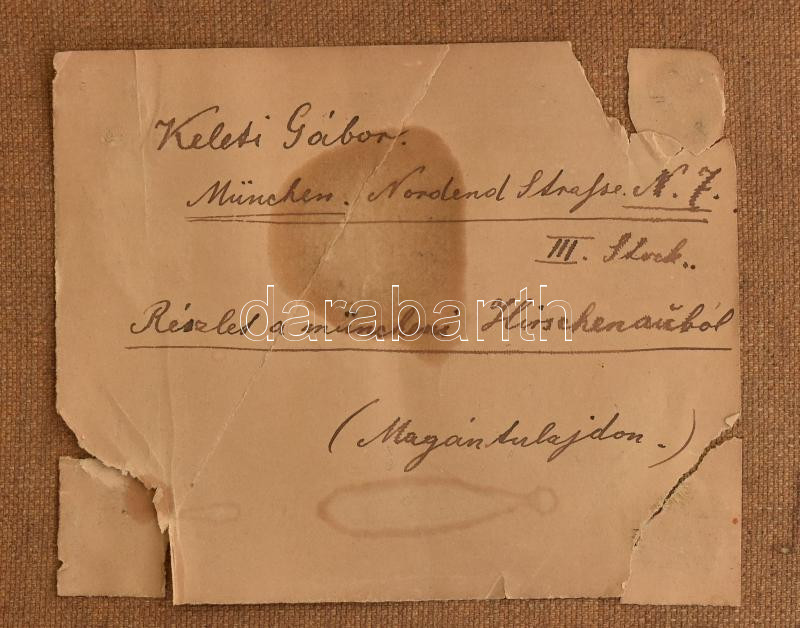 Keleti Gábor.
München. Nordend Strasse. N. 7.
III. Stock.
Részlet a müncheni Hirschenauból
(Magántulajdon.)
darabanth